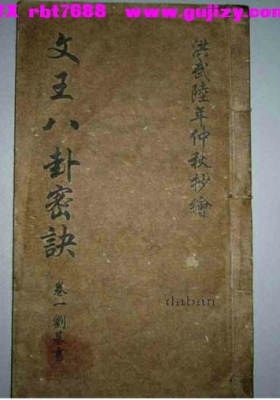 X rbt7688 www.gujizy.com
洪武陸年仲秋抄繪
文王八卦密訣
卷一劉基書
daban